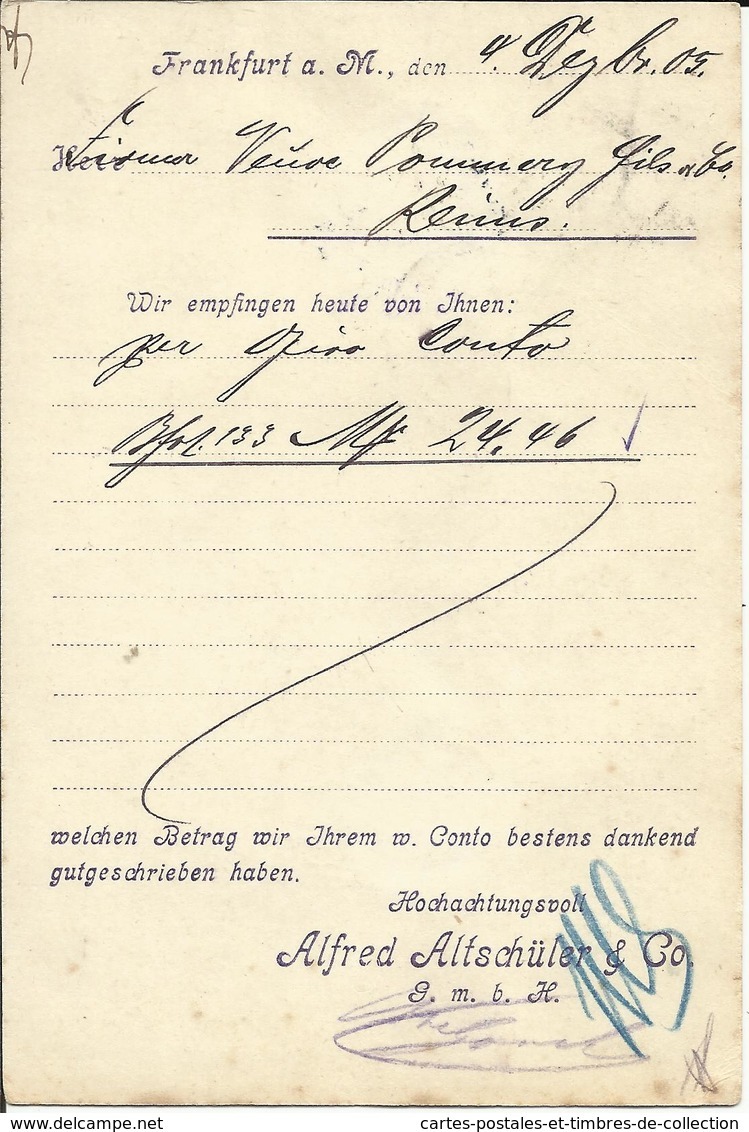 Frankfurt a. M., den 4. Dezbr. 05.
Firma Veuve Pommery fils & Co.
Reims.
Wir empfingen heute von Ihnen:
per Giro Conto
133 Mk 24.46
welchen Betrag wir Ihrem w. Conto bestens dankend
gutgeschrieben haben.
Hochachtungsvoll
Alfred Altschüler & Co.
G. m. b. H.
cartes-postales-et-timbres-de-collection